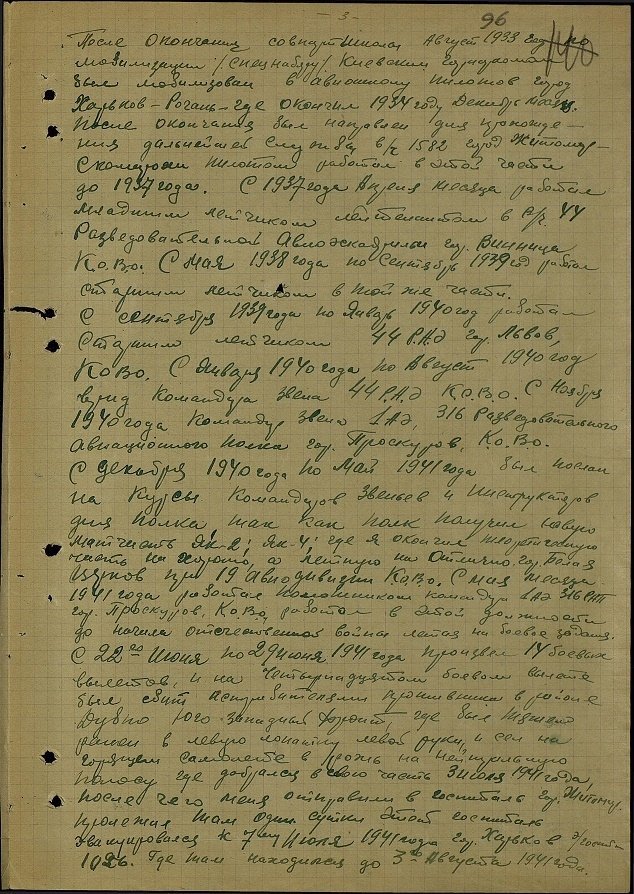 - 3 -
96
После окончания совпартшколы Август 1933 год по
мобилизации /спецнабору/ Киевским горпарткомом
был мобилизован в авиошколу пилотов город
Харьков - Рогань - где окончил 1934 году Декабрь месяц.
После окончания был направлен для прохожде-
ния дальнейшей службы в/ч 1582 город Житомир -
пилотом работал в этой части
до 1937 года. С 1937 года Апреля месяца работал
младшим летчиком лейтенантом в в/ч. 44
Разведовательной Авиоэскадрильи гор. Винница
К.О.В.О. С мая 1938 года по Сентябрь 1939 год работал
старшим летчиком в той же части.
С сентября 1939 года по Январь 1940 год работал
Старшим летчиком 44 Р.А.Э гор. Львов,
КОВО. С Января 1940 года по Август 1940 год
врид Командира звена 44 Р.А.Э К.О.В.О. С Ноября
1940 года Командир звена 1 АЭ, 316 Разведовательного
Авиационного полка гор. Проскуров, К.О.В.О.
С декабря 1940 года по Май 1941 года был послан
на Курсы Командиров Звеньев и инструкторов
для полка, так как полк получил новую
матчасть Як-2; Як-4; где я окончил теоретическую
часть на хорошо, а летную на Отлично. гор. Белая
Церковь при 19 Авиодивизии КОВО. С мая месяца
1941 года работал помошником командира 1 АЭ 316 РАП
гор. Проскуров, КОВО, работал в этой должности
до начала отечественной войны летая на боевое задания.
С 22го Июня по 29 июня 1941 года произвел 14 боевых
вылетов, и на четырнадцатом боевом вылете
был сбит истребителями противника в районе
Дубно Юго-западный фронт, где был тяжело
ранен в левую лопатку левой руки, и сел на
горящем самолете в рожь на нейтральную
полосу где добрался в свою часть 3 июля 1941 года,
после чего меня отправили в госпиталь гор. Житомир.
пролежал там одни сутки этот госпиталь
эвакуировался к 7му Июля 1941 года гор. Харьков э/госпит
1026. Где там находился до 3го Августа 1941 года.